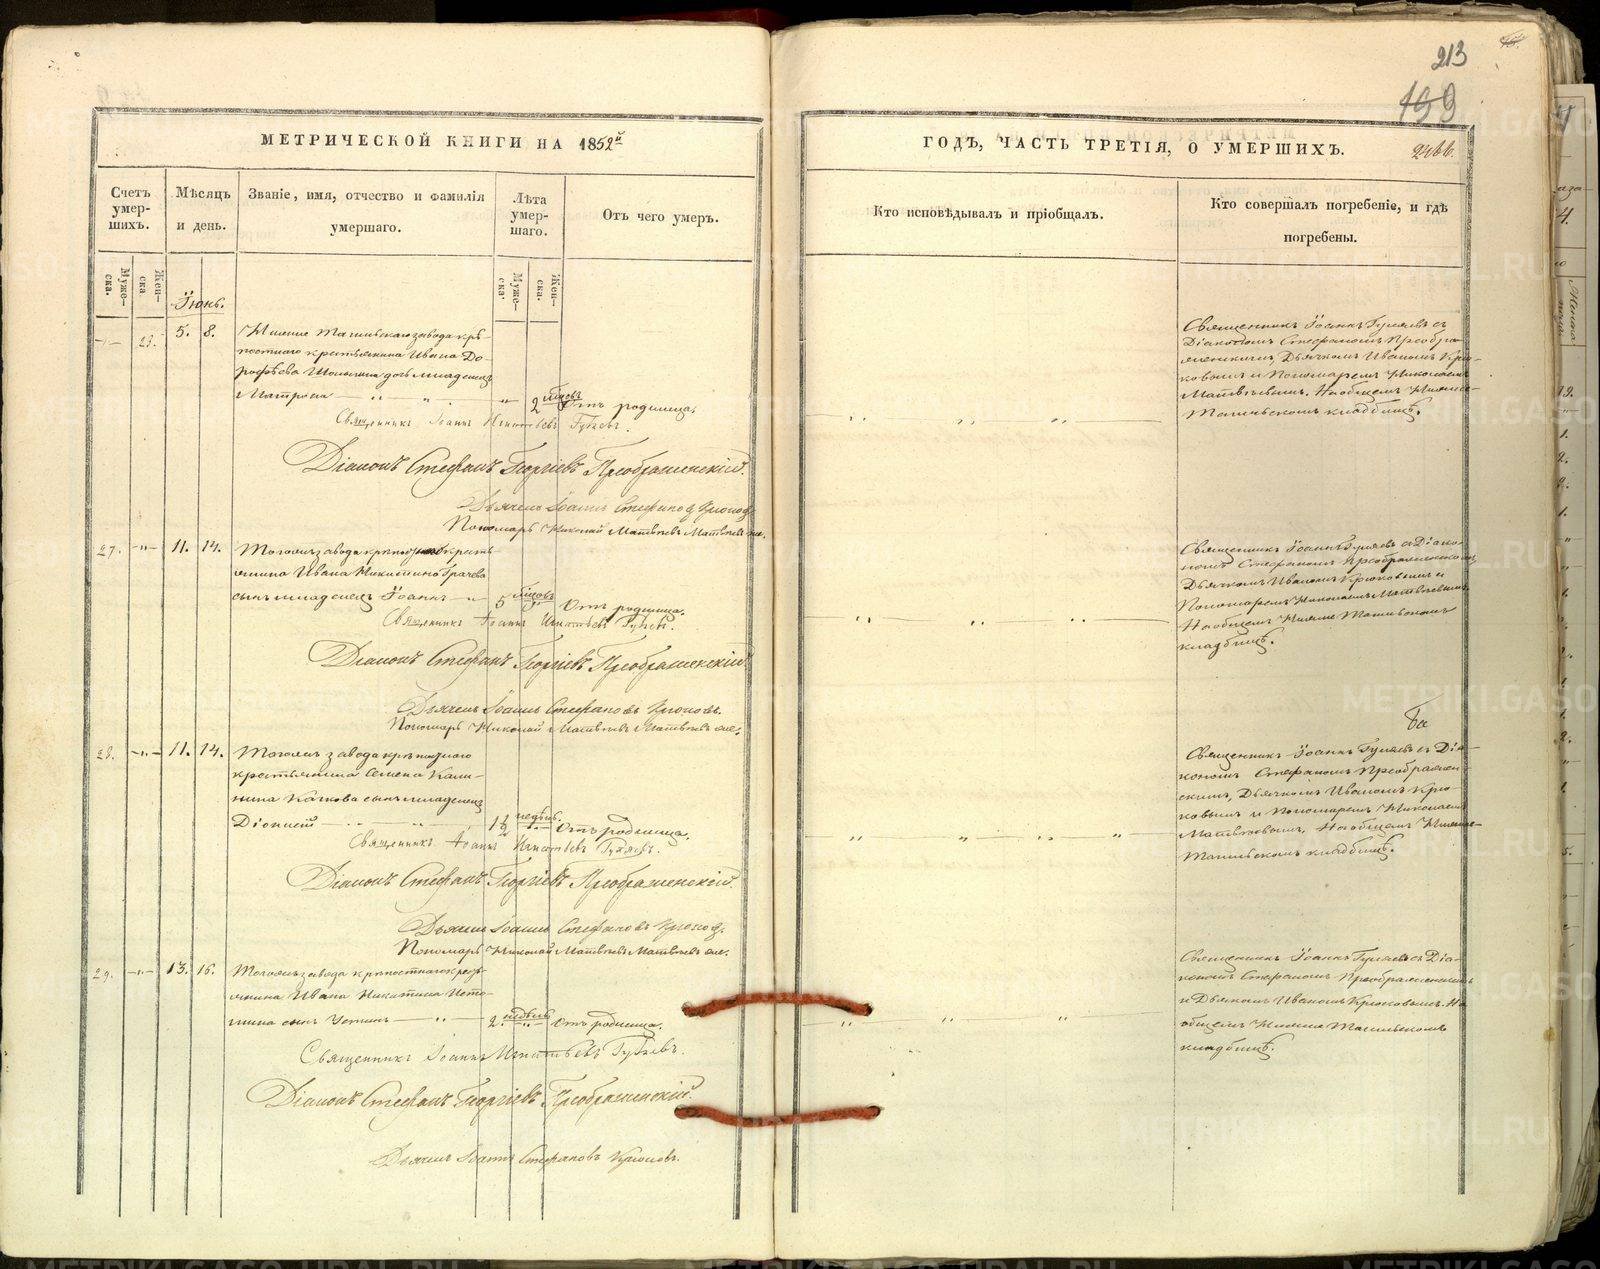 213
199
МЕТРИЧЕСКОЙ КНИГИ НА 1852й
ГОДЪ, ЧАСТЬ ТРЕТІЯ, О УМЕРШИХЪ.
Счетъ умер-
шихъ.
Муже-
ска.
Жен-
ска
Мѣсяцъ
и день.
Званіе, имя, отчество и фамилія
умершаго.
Лѣта
умер-
шаго.
Муже-
ска.
Жен-
ска.
Отъ чего умеръ.
Кто исповѣдывалъ и пріобщалъ.
Кто совершалъ погребеніе, и гдѣ
погребены.
Іюнь.
23. 5. 8. Нижне Тагильскаго завода крѣ-
постнаго крестьянина Ивана До-
рофѣева дочь младенецъ
Матрона 2 мѣсяцъ Отъ родимца.
Священникъ Іоаннъ Игнатьевъ Гуляевъ.
Діаконъ Стефанъ Георгіевъ Преображенскій.
Дьячекъ Іоаннъ Стефановъ Крюковъ.
Пономарь Николай Матвѣевъ Матвѣевъ
Священникъ Іоаннъ Гуляевъ съ
Діакономъ Стефаномъ Преобра-
женскимъ, Дьячкомъ Иваномъ Крю-
ковымъ и Пономаремъ Николаемъ
Матвѣевымъ. На общемъ Нижне-
Тагильскомъ кладбищѣ.
27. 11. 14. Тогожъ завода крѣпостнаго кресть-
янина Ивана Никитина Грачева
сынъ младенецъ Іоаннъ 5 мѣсяцовъ Отъ родимца.
Священникъ Іоаннъ Игнатьевъ Гуляевъ.
Діаконъ Стефанъ Георгіевъ Преображенскій.
Дьячекъ Іоаннъ Стефановъ Крюковъ.
Пономарь Николай Матвѣевъ Матвѣевъ
Священникъ Іоаннъ Гуляевъ съ Діако-
номъ Стефаномъ Преображенскимъ
Дьячкомъ Иваномъ Крюковымъ и
Пономаремъ Николаемъ Матвѣевымъ.
На общемъ Нижне Тагильскомъ
кладбищѣ.
28. 11. 14. Тогожъ завода крѣпостнаго
крестьянина Семена Кали-
нина Качкова сынъ младенецъ
Діонисій 1½ недѣль. Отъ родимца.
Священникъ Іоаннъ Игнатьевъ Гуляевъ.
Діаконъ Стефанъ Георгіевъ Преображенскій.
Дьячекъ Іоаннъ Стефановъ Крюковъ.
Пономарь Николай Матвѣевъ Матвѣевъ
Священникъ Іоаннъ Гуляевъ съ Діа-
кономъ Стефаномъ Преображен-
скимъ, Дьячкомъ Иваномъ Крю-
ковымъ и Пономаремъ Николаемъ
Матвѣевымъ, На общемъ Нижне-
Тагильскомъ кладбищѣ.
29. 13. 16. Тогожъ завода крѣпостнаго кресть-
янина Ивана Никитина Исто-
мина сынъ Устинъ 2. недѣль Отъ родимца.
Священникъ Іоаннъ Игнатьевъ Гуляевъ.
Діаконъ Стефанъ Георгіевъ Преображенскій.
Дьячекъ Іоаннъ Стефановъ Крюковъ.
Священникъ Іоаннъ Гуляевъ съ Діа-
кономъ Стефаномъ Преображенскимъ
и Дьячкомъ Иваномъ Крюковымъ. На
общемъ Нижне Тагильскомъ
кладбищѣ.
METRIKI.GASO-URAL.RU